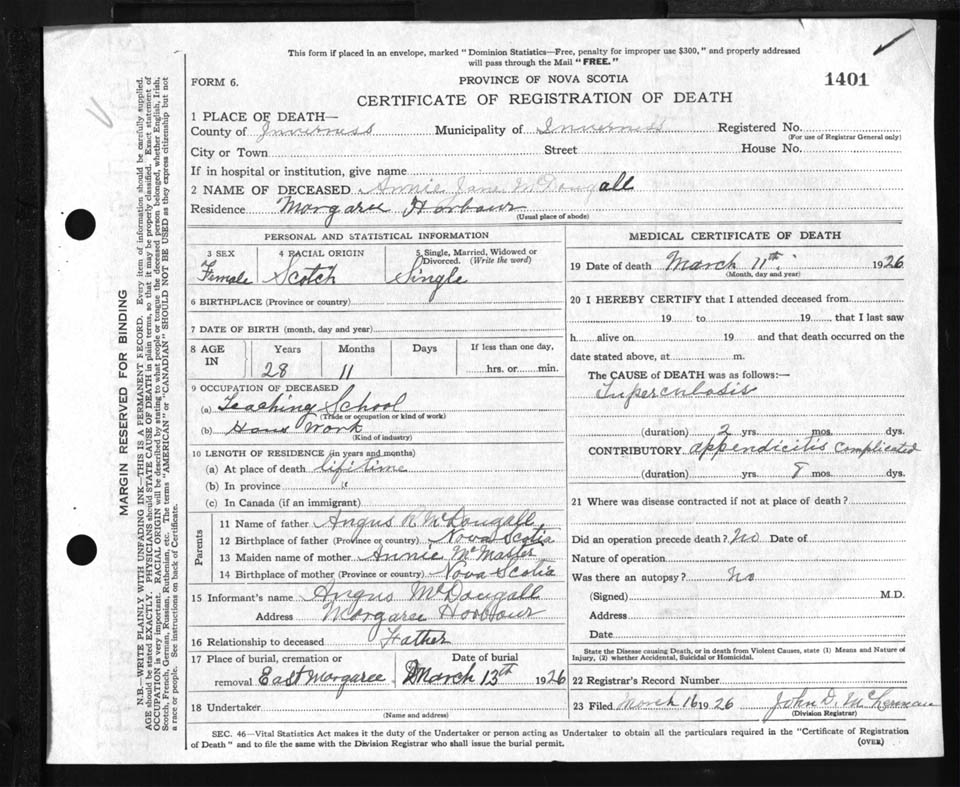 This form if placed in an envelope, marked "Dominion Statistics—Free, penalty for improper use $300," and properly addressed
will pass through the Mail "FREE."
FORM 6.
PROVINCE OF NOVA SCOTIA
1401
CERTIFICATE OF REGISTRATION OF DEATH
1 PLACE OF DEATH—
County of Inverness Municipality of Inverness Registered No.
(For use of Registrar General only)
City or Town Street House No.
If in hospital or institution, give name
2 NAME OF DECEASED Annie Jane McDougall
Residence Margaree Harbour
(Usual place of abode)
PERSONAL AND STATISTICAL INFORMATION
3 SEX 4 RACIAL ORIGIN 5 Single, Married, Widowed or
Divorced. (Write the word)
Female Scotch Single
6 BIRTHPLACE (Province or country)
7 DATE OF BIRTH (month, day and year)
8 AGE IN Years Months Days If less than one day,
28 11 hrs. or min.
9 OCCUPATION OF DECEASED
(a) Teaching School
(Trade or occupation or kind of work)
(b) Hous Work
(Kind of industry)
10 LENGTH OF RESIDENCE (in years and months)
(a) At place of death lifitime
(b) In province "
(c) In Canada (if an immigrant)
Parents
11 Name of father Angus R McDougall
12 Birthplace of father (Province or country) Nova Scotia
13 Maiden name of mother Annie McMaster
14 Birthplace of mother (Province or country) Nova Scotia
15 Informant's name Angus McDougall
Address Margaree Harbour
16 Relationship to deceased Father
17 Place of burial, cremation or Date of burial
removal East Margaree March 13th 1926
18 Undertaker
(Name and address)
MEDICAL CERTIFICATE OF DEATH
19 Date of death March 11th 1926
(Month, day and year)
20 I HEREBY CERTIFY that I attended deceased from
19 to 19 that I last saw
h alive on 19 and that death occurred on the
date stated above, at m.
The CAUSE of DEATH was as follows:—
Tuperculosis
(duration) 2 yrs. mos. dys.
CONTRIBUTORY appendicitis complicated
(duration) yrs. 8 mos. dys.
21 Where was disease contracted if not at place of death?
Did an operation precede death? No Date of
Nature of operation
Was there an autopsy? No
(Signed) M.D.
Address
Date
State the Disease causing Death, or in death from Violent Causes, state (1) Means and Nature of
Injury, (2) whether Accidental, Suicidal or Homicidal.
22 Registrar's Record Number
23 Filed March 16 1926 John D.
(Division Registrar)
SEC. 46—Vital Statistics Act makes it the duty of the Undertaker or person acting as Undertaker to obtain all the particulars required in the "Certificate of Registration
of Death" and to file the same with the Division Registrar who shall issue the burial permit.
(OVER)
MARGIN RESERVED FOR BINDING
N.B.—WRITE PLAINLY WITH UNFADING INK—THIS IS A PERMANENT RECORD. Every item of information should be carefully supplied.
AGE should be stated EXACTLY. PHYSICIANS should STATE CAUSE OF DEATH in plain terms, so that it may be properly classified. Exact statement of
OCCUPATION is very important. RACIAL ORIGIN will be described by stating to what people or tongue the deceased person belonged, whether English, Irish,
Scotch, French, German, Russian, Ruthenian, etc. The terms "AMERICAN" or "CANADIAN" SHOULD NOT BE USED as they express citizenship but not
a race or people. See instructions on back of Certificate.